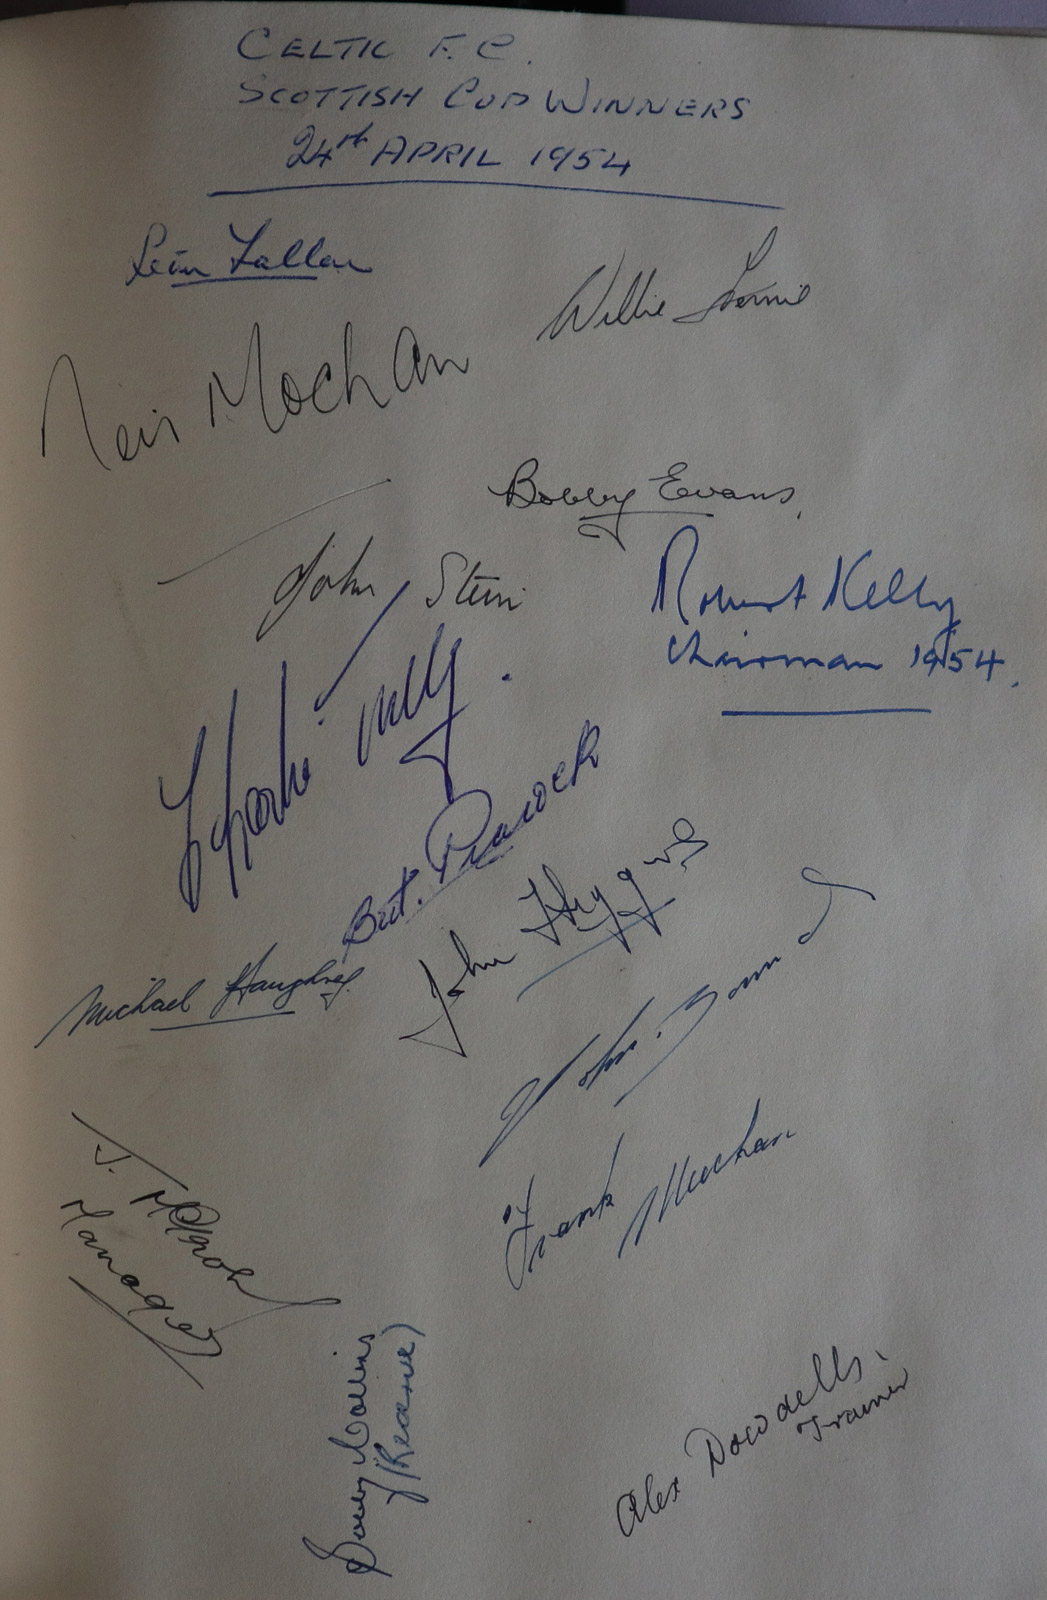 CELTIC F.C.
SCOTTISH CUP WINNERS
24th APRIL 1954
Seán Fallon
Willie Fernie
Neil Mochan
Bobby Evans
John Stein
Robert Kelly
Chairman 1954
Charlie Tully
Bert. Peacock
John Higgins
Michael Haughney
John. Bonnar
Frank Meechan
J. McGrory
Manager
Bobby Collins
(Reserve)
Alex Dowdells
Trainer